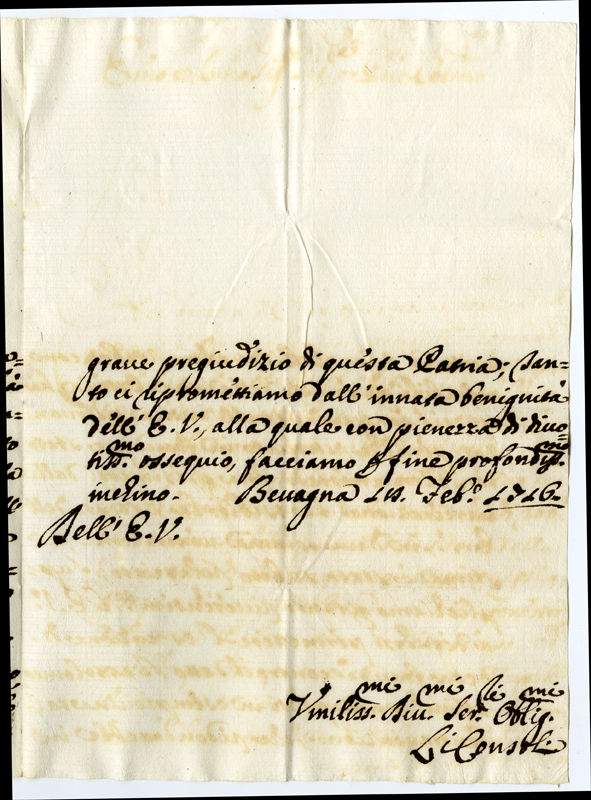 graue pregiudizio di questa Patria; tan=
to ci ripromettiamo dall' innata benignità
dell' E. V., alla quale con pienezza di diuo
tiss.mo ossequio, facciamo p fine profondiss.mo
inchino. Beuagna Feb.o 1716
Dell' E. V.
Vmiliss.mi Diu.mi Ser.ri Oblig.mi
Li Consoli